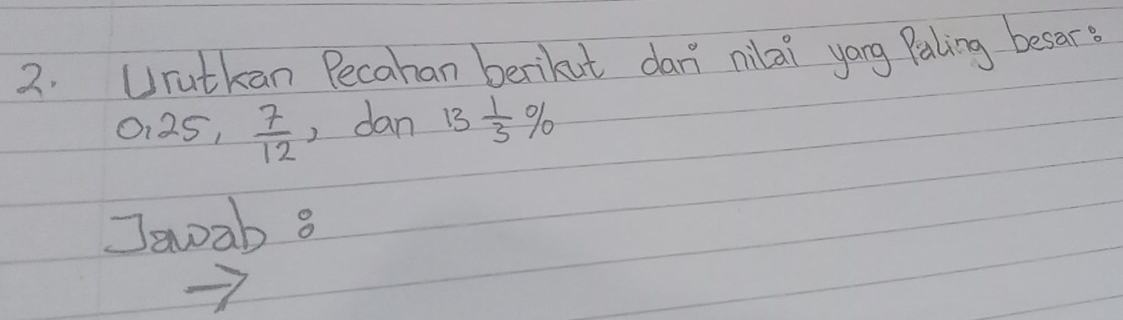 2. Urutkan Pecahan berikut dari nilai yang Paling besar:
0,25, 7/12, dan 13 1/3 %
Jawab :
→